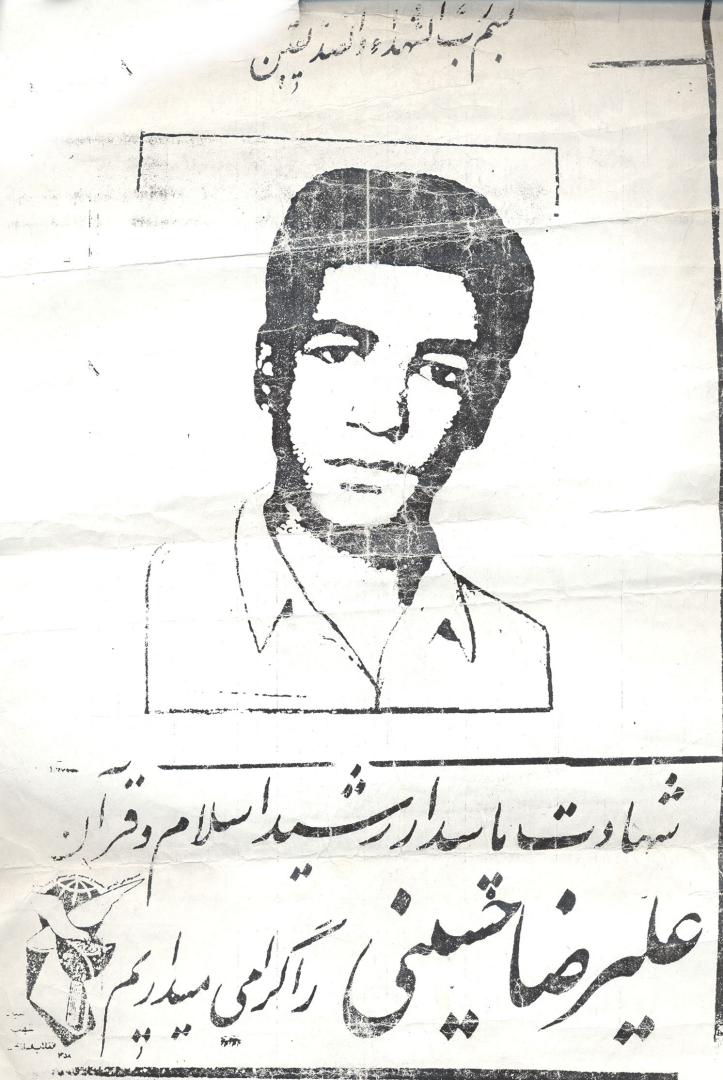 بسم رب الشهداء والصدیقین
شهادت پاسدار رشید اسلام و قرآن
علیرضا حسینی
را گرامی میداریم